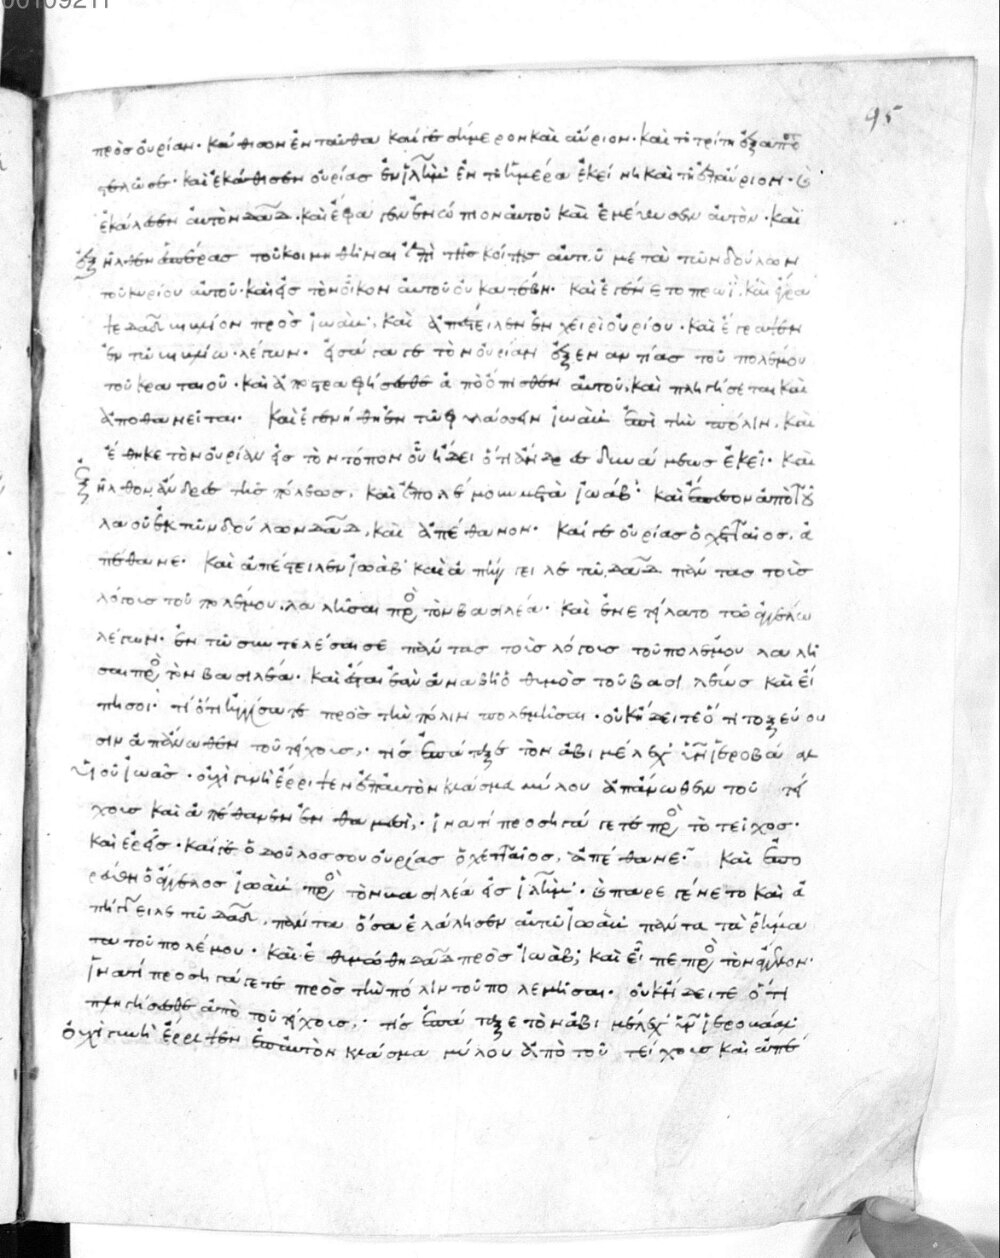 00109211
95
πρὸς οὐρίαν· κάθισον ἐνταῦθα καί γε σήμερον καὶ αὔριον· καὶ τῇ τρίτῃ ἐξαποσ
τελῶ σε· καὶ ἐκάθισεν οὐρίας ἐν ἰλῆμ ἐν τῇ ἡμέρα ἐκείνη καὶ τῇ ἐπαύριον·
ἐκάλεσεν αὐτὸν δαδ· καὶ ἔφαγεν ἐνώπιον αὐτοῦ καὶ ἐμέθυσεν αὐτόν· καὶ
ἐξῆλθεν ἑσπέρας τοῦ κοιμηθῆναι ἐπὶ τῆς κοίτης αὐτοῦ μετὰ τῶν δούλων
τοῦ κυρίου αὐτοῦ· καὶ εἰς τὸν οἶκον αὐτοῦ οὐ κατέβη· καὶ ἐγένετο πρωῒ, καὶ ἔγρα
ψε δαδ βιβλίον πρὸς ἰωάβ, καὶ ἀπέστειλεν ἐν χειρὶ οὐρίου· καὶ ἔγραψεν
ἐν τῷ βιβλίω λέγων· εἰσάγαγε τὸν οὐρίαν ἐξεναντίας τοῦ πολέμου
τοῦ κραταιοῦ· καὶ ἀποστραφήσεσθε ἀπὸ ὄπισθεν αὐτοῦ, καὶ πληγήσεται καὶ
ἀποθανεῖται· καὶ ἐγενήθη ἐν τῷ φυλάσσειν ἰωὰβ ἐπὶ τὴν πόλιν, καὶ
ἔθηκε τὸν οὐρίαν εἰς τὸν τόπον οὗ ᾔδει ὅτι ἄνδρες δυνάμεως ἐκεῖ· καὶ
ἐξῆλθον ἄνδρες τῆς πόλεως, καὶ ἐπολέμουν μετὰ ἰωάβ· καὶ ἔπεσον ἀπὸ τοῦ
λαοῦ ἐκ τῶν δούλων δαδ, καὶ ἀπέθανον· καί γε οὐρίας ὁ χετταῖος, ἀ
πέθανε· καὶ ἀπέστειλεν ἰωὰβ καὶ ἀπήγγειλε τῷ δαδ πάντας τοὺς
λόγους τοῦ πολέμου λαλῆσαι πρὸς τὸν βασιλέα· καὶ ἐνετείλατο τῷ ἀγγέλω
λέγων· ἐν τῷ συντελέσαι σε πάντας τοὺς λόγους τοῦ πολέμου λαλῆ
σαι πρὸς τὸν βασιλέα· καὶ ἔσται ἐὰν ἀναβῇ ὁ θυμὸς τοῦ βασιλέως καὶ εἴ
πη σοι· τί ὅτι ἠγγίσατε πρὸς τὴν πόλιν πολεμῆσαι· οὐκ ᾔδειτε ὅτι τοξεύου
σιν ἀπάνωθεν τοῦ τείχους· τίς ἐπάταξε τὸν ἀβιμέλεχ υἱὸν ἱεροβάαλ
υἱοῦ ἰωάς· οὐχὶ γυνὴ ἔρριψεν ἐπ' αὐτὸν κλάσμα μύλου ἀπάνωθεν τοῦ τεί
χους καὶ ἀπέθανεν ἐν θαμασί· ἱνατί προσηγάγετε πρὸς τὸ τεῖχος·
καὶ ἐρεῖς· καί γε ὁ δοῦλος σου οὐρίας ὁ χετταῖος, ἀπέθανε· καὶ ἐπο
ρεύθη ὁ ἄγγελος ἰωὰβ πρὸς τὸν βασιλέα εἰς ἰλῆμ· παρεγένετο καὶ ἀ
πήγγειλε τῷ δαδ, πάντα ὅσα ἐλάλησεν αὐτῷ ἰωὰβ πάντα τὰ ῥήμα
τα τοῦ πολέμου· καὶ ἐθυμώθη δαδ πρὸς ἰωάβ· καὶ εἶπε πρὸς τὸν ἄγγελον·
ἱνατί προσηγάγετε πρὸς τὴν πόλιν τοῦ πολεμῆσαι· οὐκ ᾔδειτε ὅτι
πληγήσεσθε ἀπὸ τοῦ τείχους· τίς ἐπάταξε τὸν ἀβιμέλεχ υἱὸν ἱεροβάαλ
οὐχὶ γυνὴ ἔρριψεν ἐπ' αὐτὸν κλάσμα μύλου ἀπὸ τοῦ τείχους καὶ ἀπέ